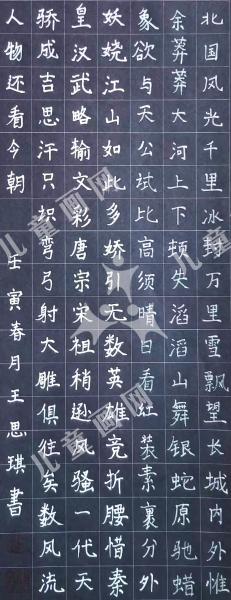 北国风光千里冰封万里雪飘望长城内外惟
余莽莽大河上下顿失滔滔山舞银蛇原驰蜡
象欲与天公试比高须晴日看红装素裹分外
妖娆江山如此多娇引无数英雄竞折腰惜秦
皇汉武略输文彩唐宗宋祖稍逊风骚一代天
骄成吉思汗只识弯弓射大雕俱往矣数风流
人物还看今朝 壬寅春月王思琪書
儿童画网
儿童画网
儿童画网